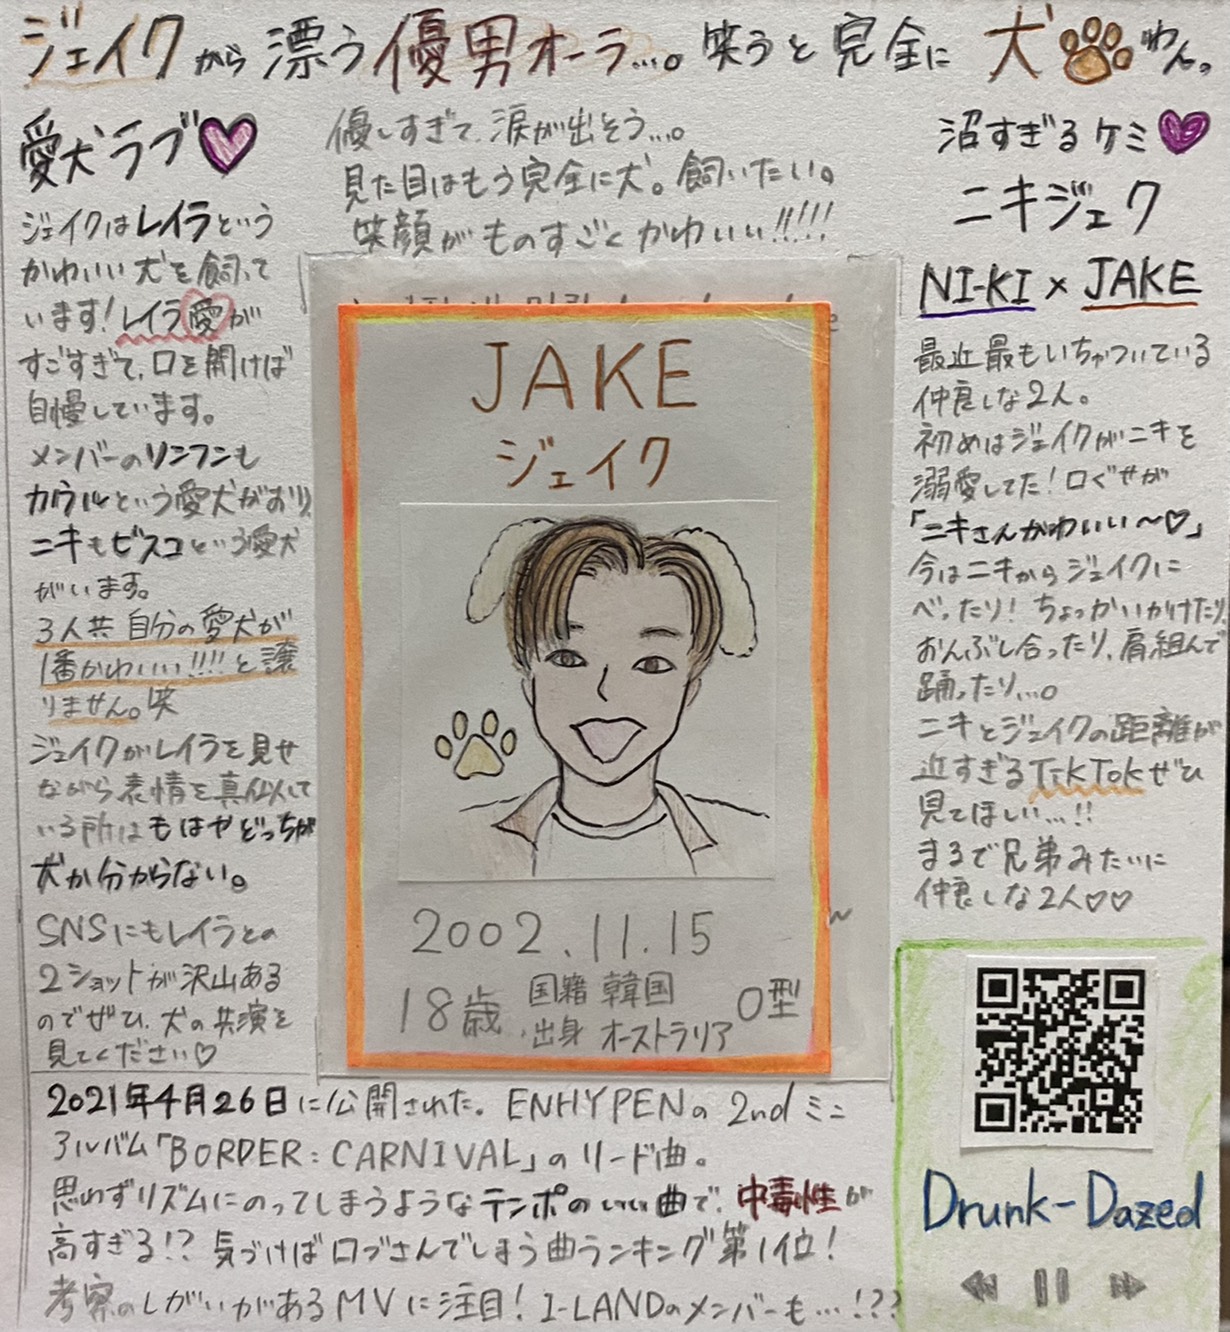 ジェイクから漂う優男オーラ…。笑うと完全に犬わん。
愛犬ラブ
ジェイクはレイラという
かわいい犬を飼って
います!レイラ愛が
すごすぎて、口を開けば
自慢しています。
メンバーのソンフンも
カウルという愛犬がおり、
ニキもビスコという愛犬
がいます。
3人共自分の愛犬が
1番かわいい!!!!と譲
りません。笑
ジェイクがレイラを見せ
ながら表情を真似して
いる所はもはやどっちが
犬か分からない。
SNSにもレイラとの
2ショットが沢山ある
のでぜひ、犬の共演を
見てください♡
優しすぎて、涙が出そう…。
見た目はもう完全に犬。飼いたい。
笑顔がものすごくかわいい!!!!
JAKE
ジェイク
2002.11.15
18歳
国籍 韓国
出身 オーストラリア
O型
沼すぎるケミ
ニキジェク
NI-KI × JAKE
最近最もいちゃついている
仲良しな2人。
初めはジェイクがニキを
溺愛してた!口ぐせが
「ニキさんかわいい〜♡」
今はニキからジェイクに
べったり!ちょっかいかけたり、
おんぶし合ったり、肩組んで
踊ったり…。
ニキとジェイクの距離が
近すぎるTikTokぜひ
見てほしい…!!
まるで兄弟みたいに
仲良しな2人♡♡
2021年4月26日に公開された。ENHYPENの2ndミニ
アルバム「BORDER:CARNIVAL」のリード曲。
思わずリズムにのってしまうようなテンポのいい曲で、中毒性が
高すぎる!?気づけば口ずさんでしまう曲ランキング第1位!
考察のしがいがあるMVに注目!I-LANDのメンバーも…!??
Drunk-Dazed